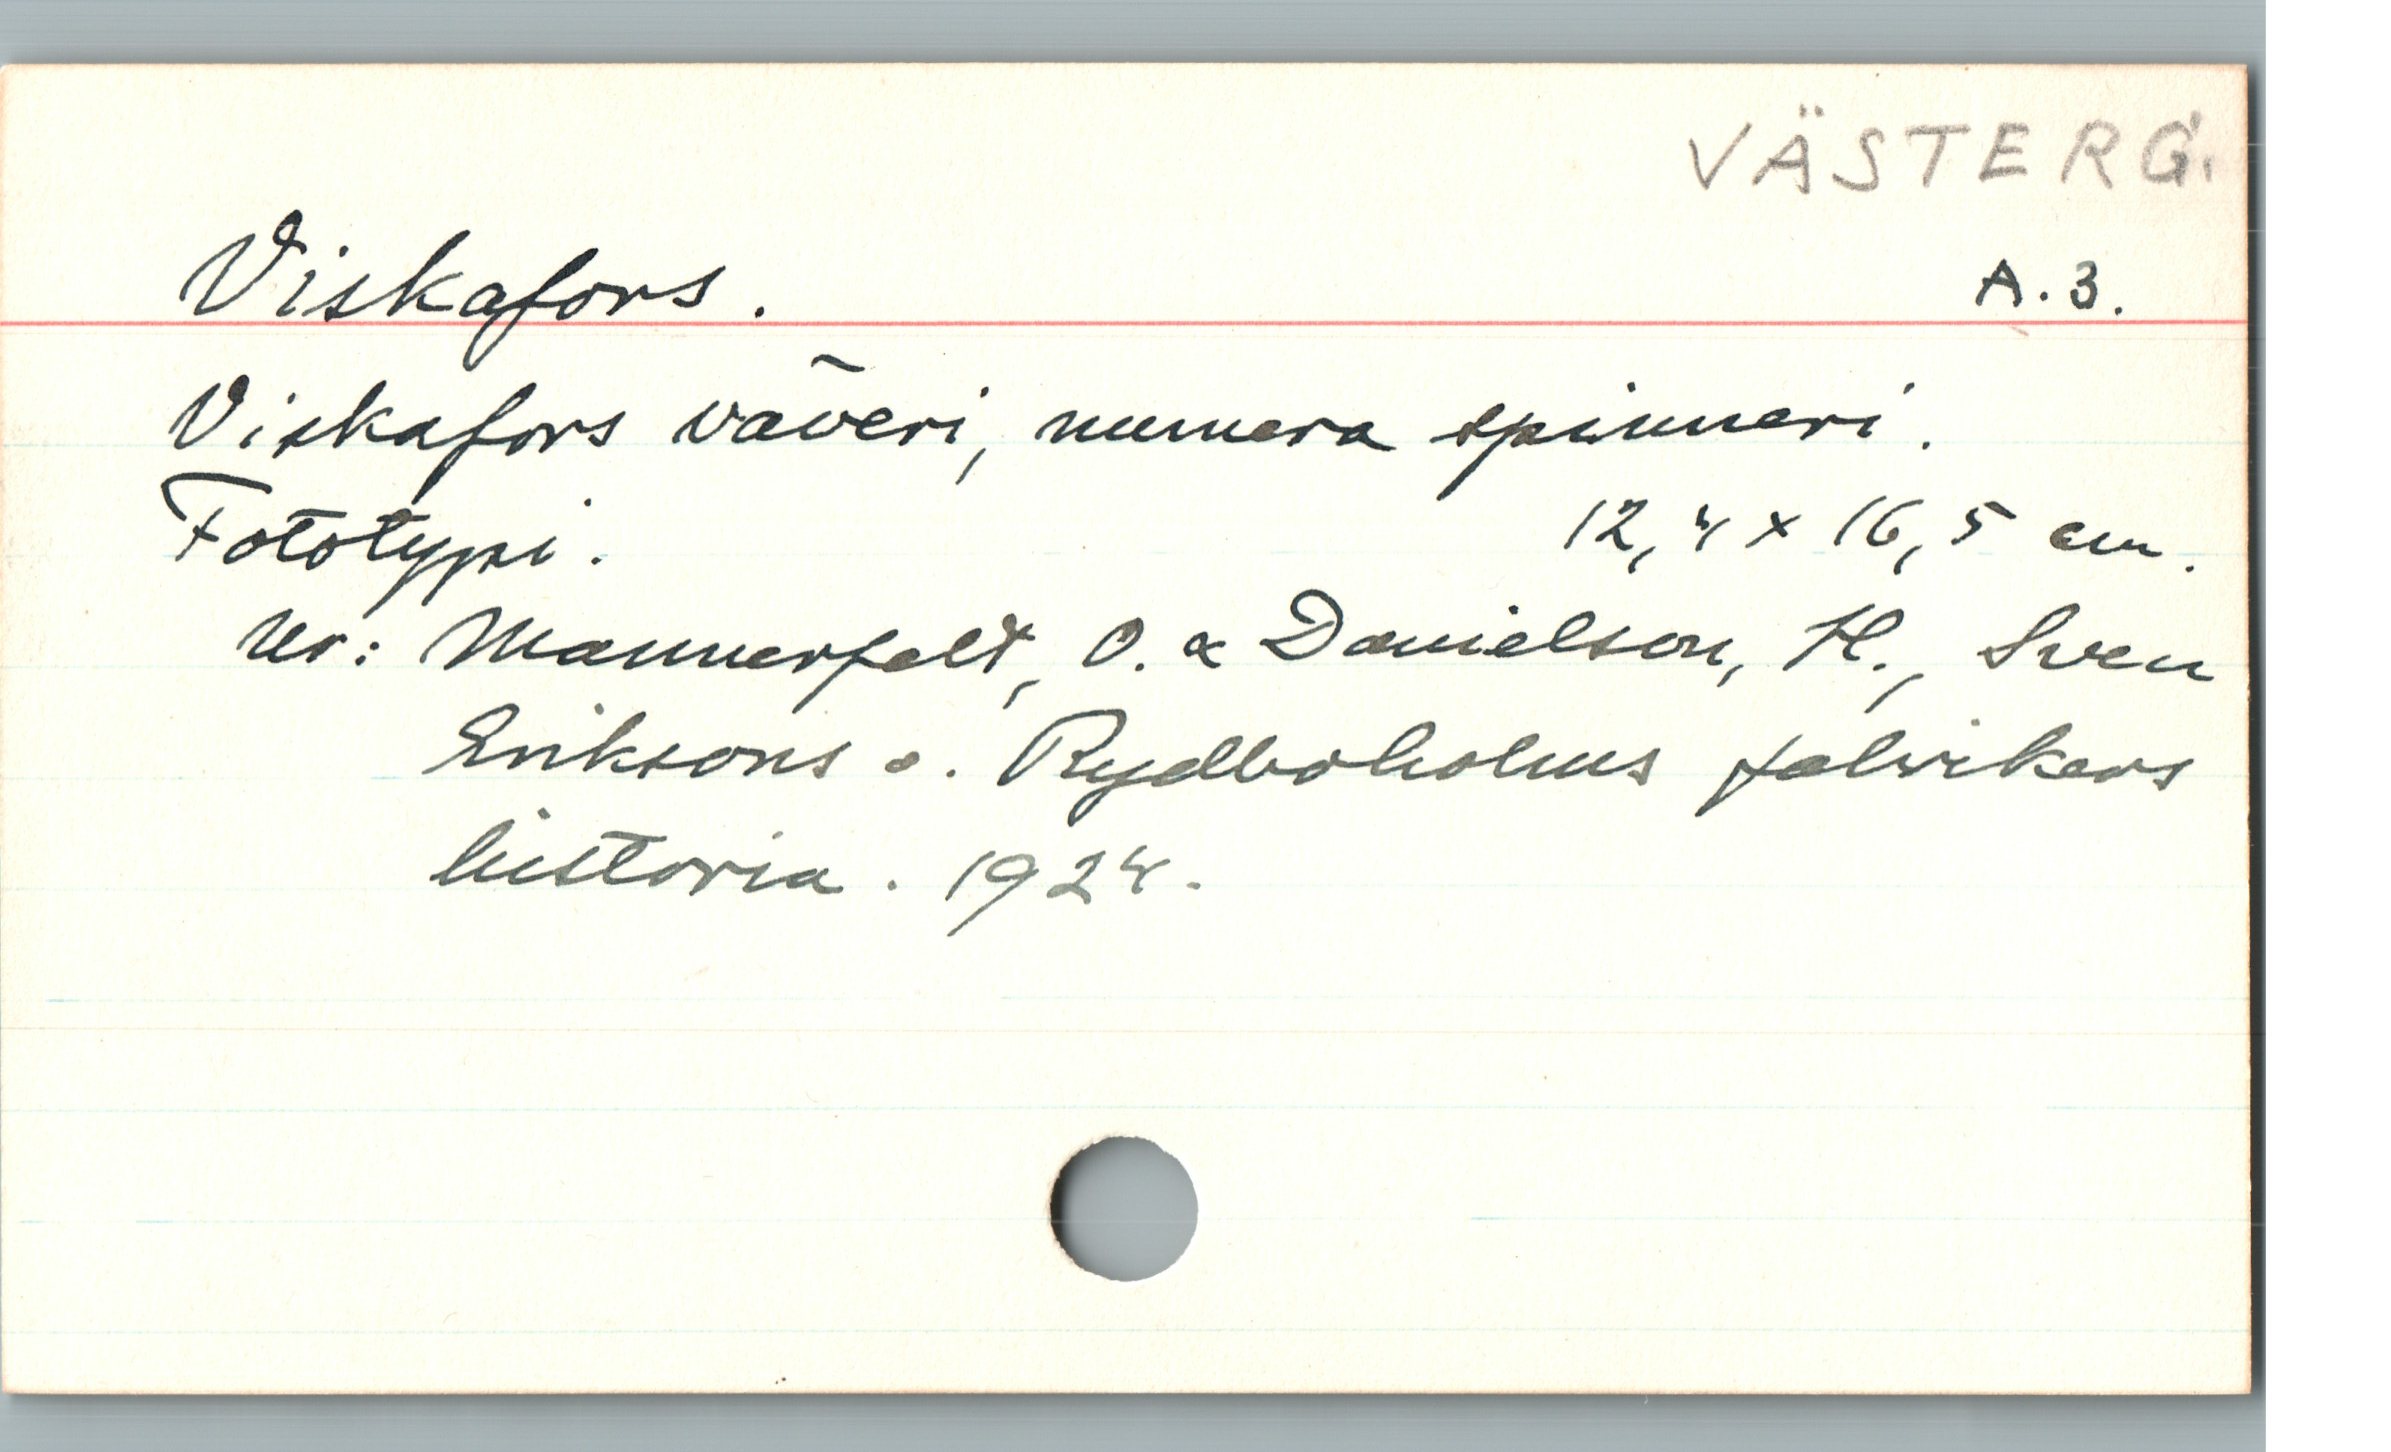 VÄSTERG.
Viskafors. A. 3.
Viskafors väveri, numera spinneri.
Fototypi. 12,4 x 16,5 cm.
Ur: Mannerfelt, O. & Danielson, H., Sven
Eriksons o. Rydboholms fabrikers
historia. 1924.